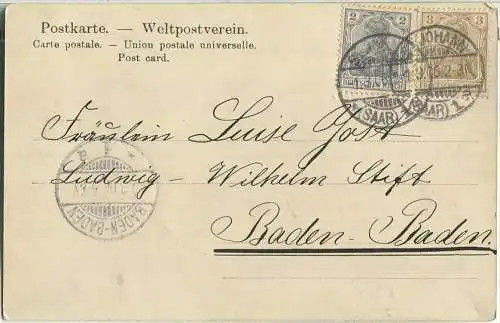 Postkarte. — Weltpostverein.
Carte postale. - Union postale universelle.
Post card.
2
3
ST. JOHANN
(SAAR) 1
(SAAR) 1
Fräulein Luise Jost
Ludwig - Wilhelm Stift
Baden-Baden.
BADEN-BADEN